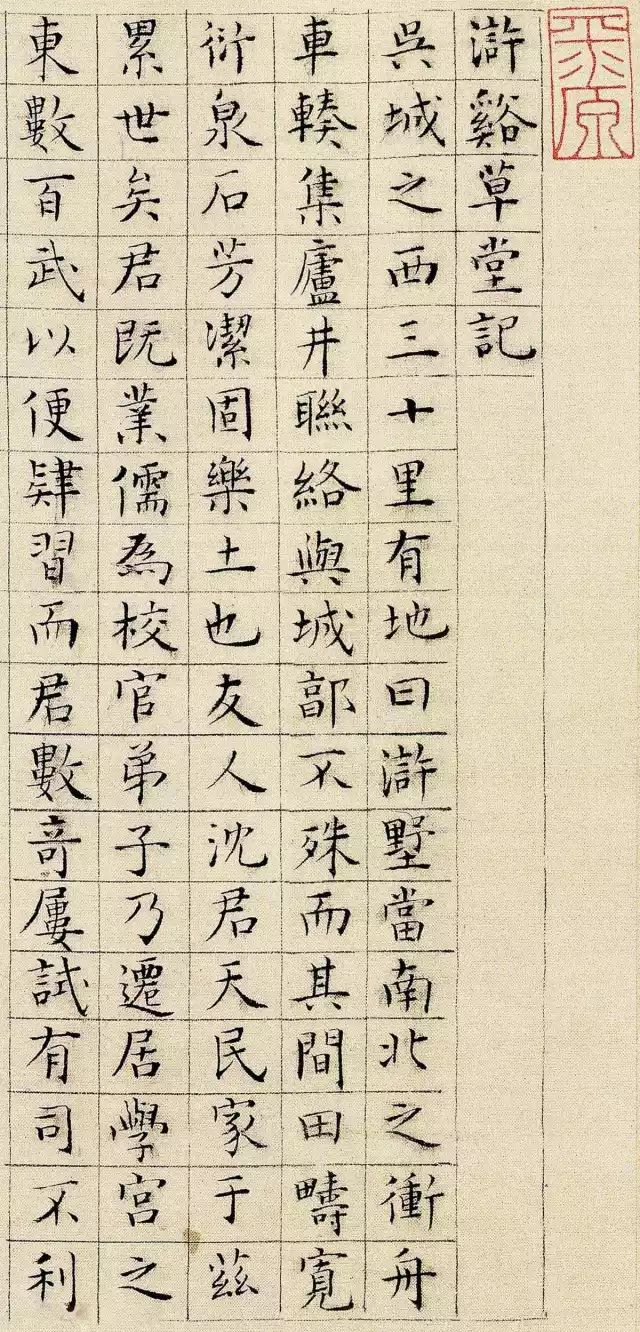 平原
滸谿草堂記
吳城之西三十里有地曰滸墅當南北之衝舟
車輳集廬井聯絡與城郭不殊而其間田疇寬
衍泉石芳潔固樂土也友人沈君天民家于茲
累世矣君既業儒為校官弟子乃遷居學宮之
東數百武以便肄習而君數奇屢試有司不利